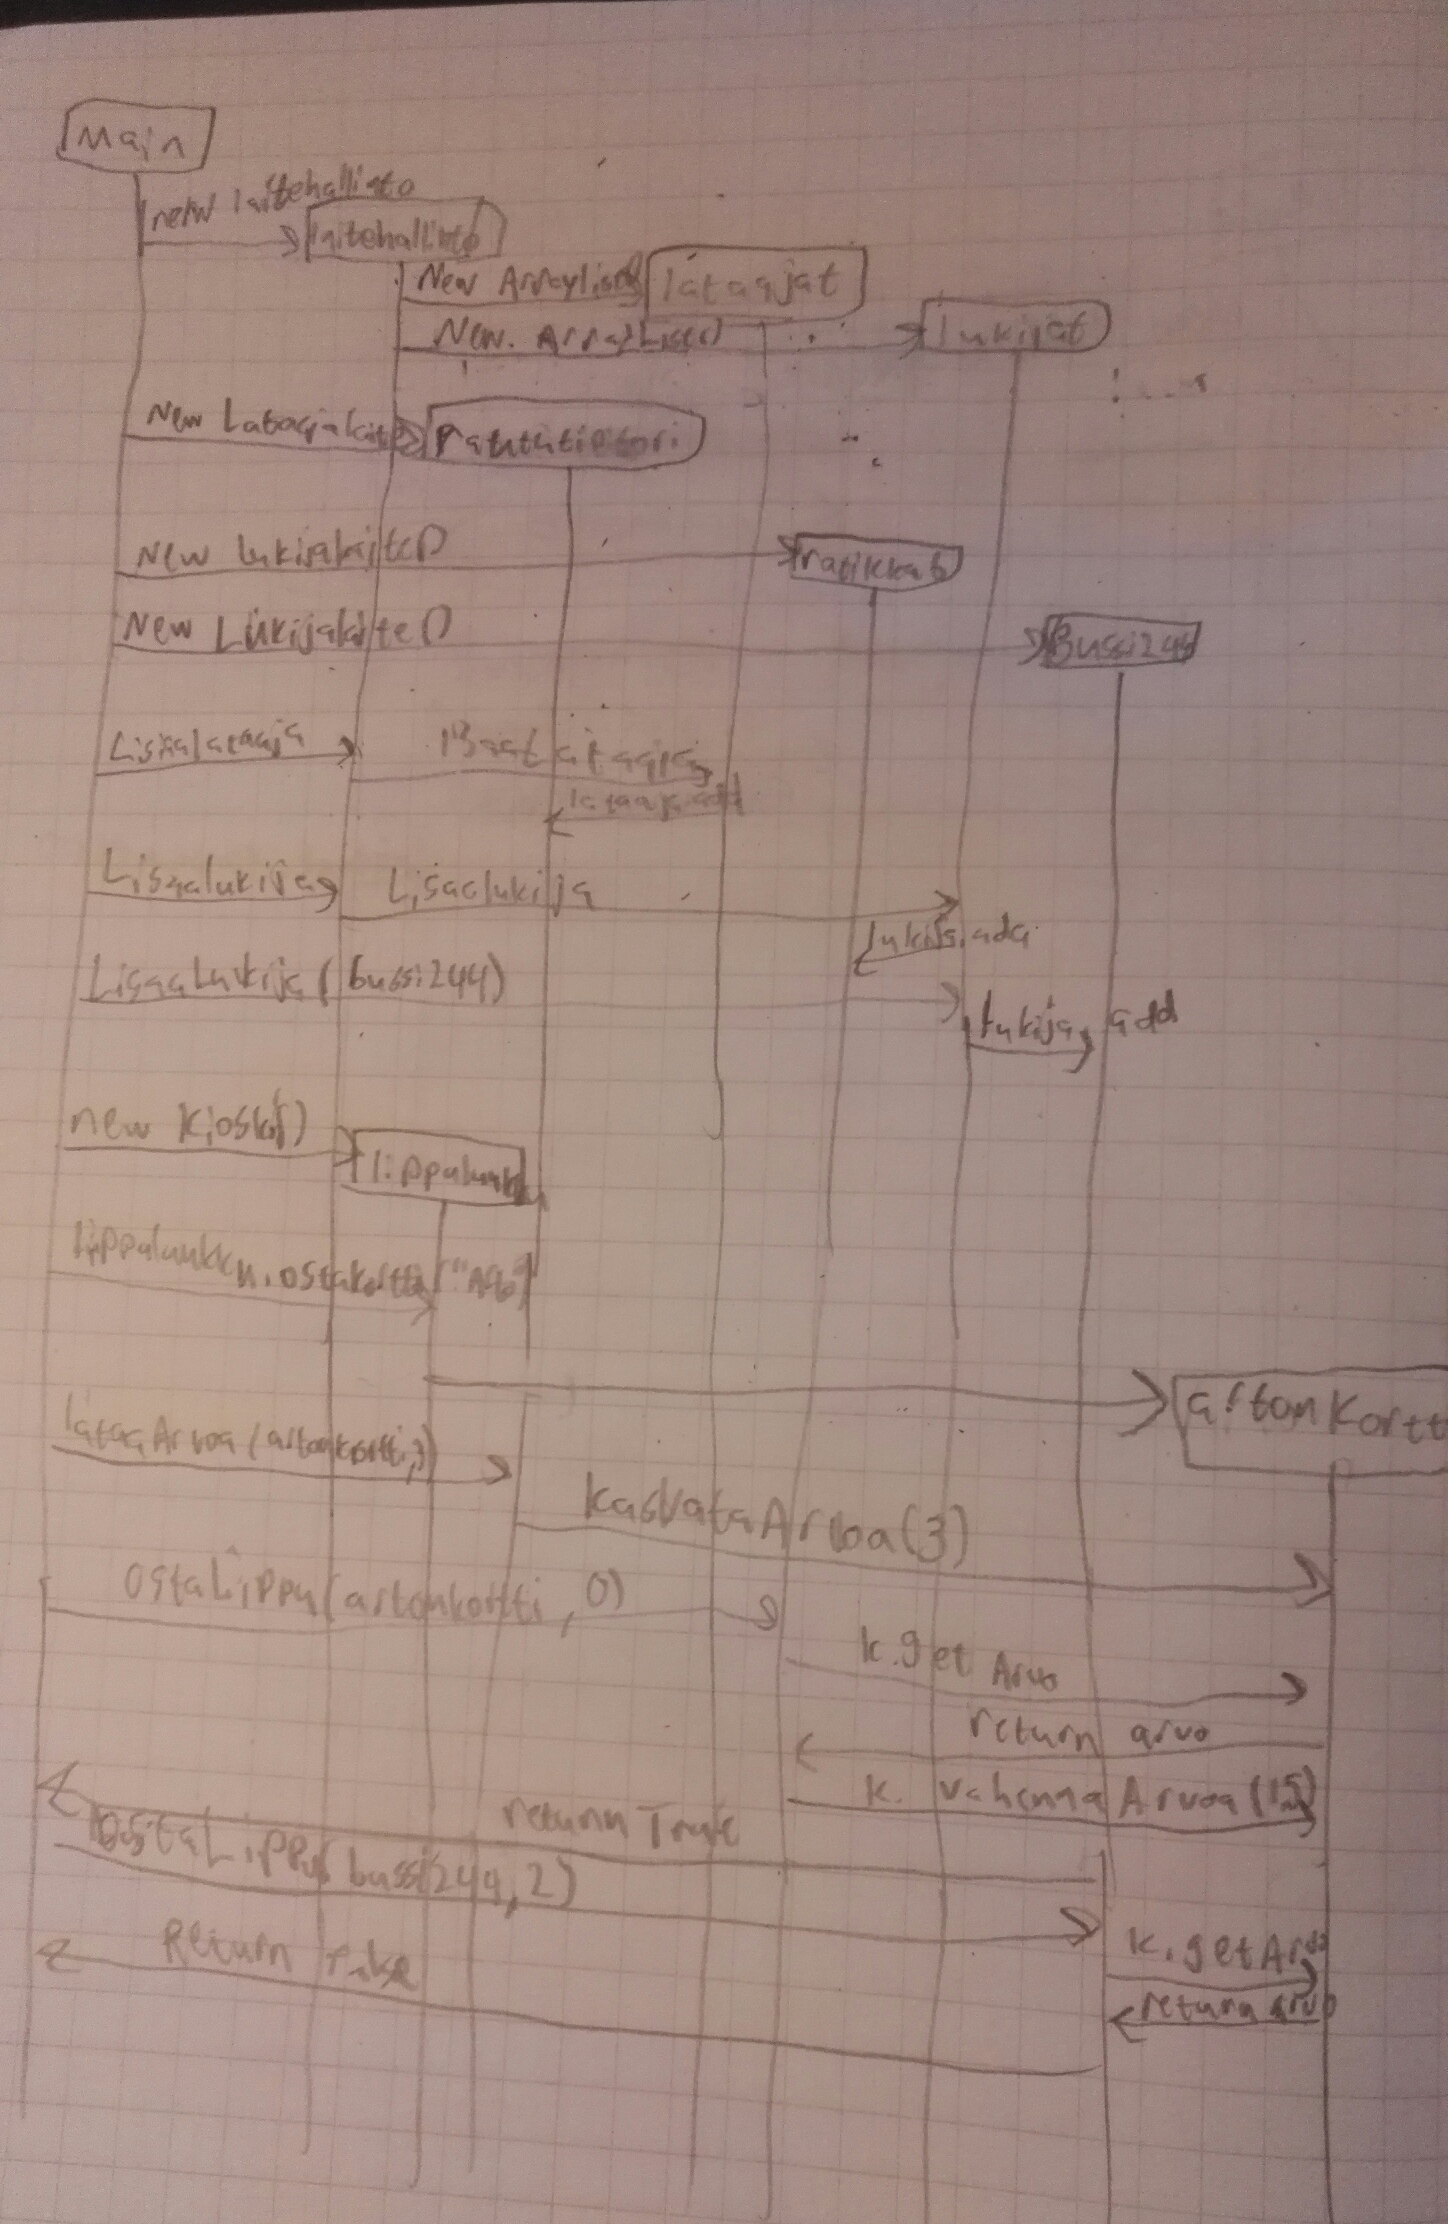 Main
new laitehallinto
laitehallinto
New Arraylist()
lataajat
New. ArrayList()
lukijat
New Lataajalaite()
rautatietori
New Lukijalaite()
ratikka6
New Lukijalaite()
Bussi244
Lisaalataaja
lataaja.add
Lisaalukija
Lisaalukija
lukija.add
LisaaLukija(bussi244)
Lukija.add
new Kioski()
lippaluukku
lippaluukku.ostakortti("Arto")
artonKortti
lataaArvoa(artonkortti,3)
kasvataArvoa(3)
OstaLippu(artonkortti, 0)
k.get Arvo
return arvo
k. vahennaArvoa(1.5)
return True
OstaLippu(bussi244, 2)
k.getArvo
return arvo
Return False